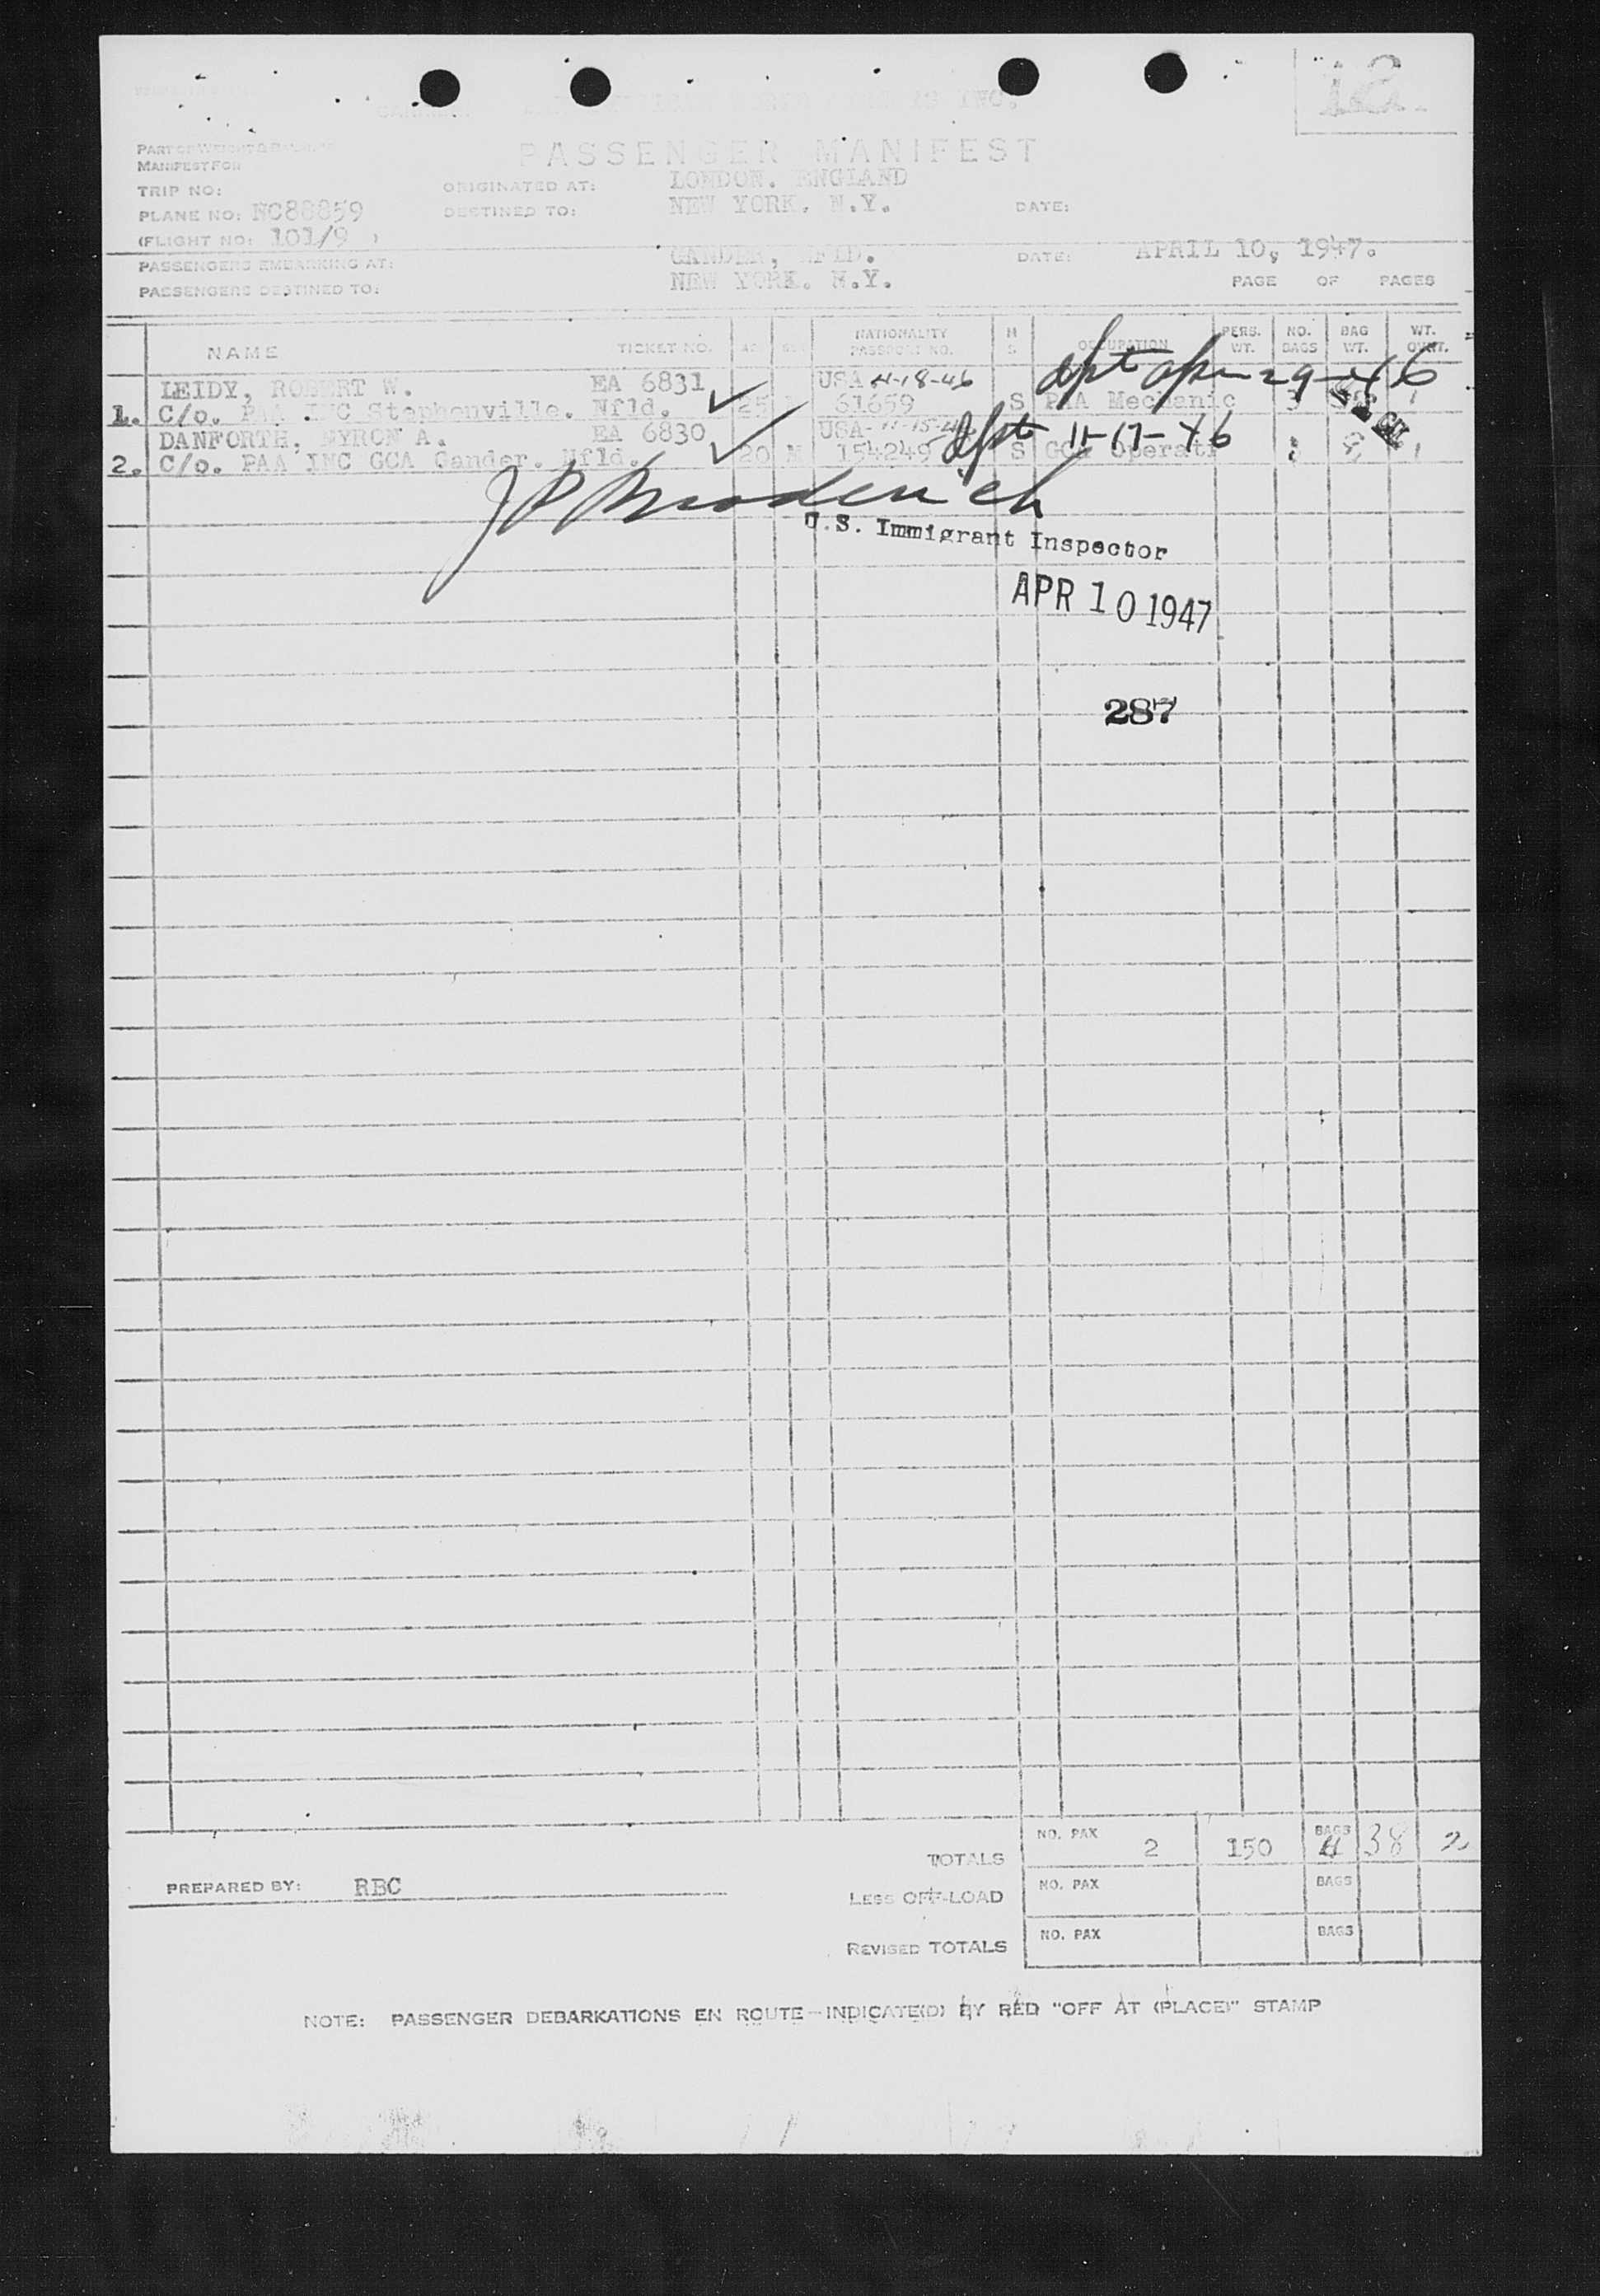 12
PASSENGER MANIFEST
MANIFEST FOR
TRIP NO: ORIGINATED AT: LONDON. ENGLAND
PLANE NO: NC88859 DESTINED TO: NEW YORK. N.Y. DATE:
(FLIGHT NO: 101/9 )
PASSENGERS EMBARKING AT: GANDER, NFLD. DATE: APRIL 10, 1947.
PASSENGERS DESTINED TO: NEW YORK. N.Y. PAGE OF PAGES
NAME TICKET NO. AGE SEX NATIONALITY PASSPORT NO. M S OCCUPATION PERS. WT. NO. BAGS BAG WT. WT. OVWT.
LEIDY, ROBERT W. EA 6831 USA 4-18-46 dpt apr 29-46
1. C/o. PAA INC Stephenville. Nfld. 25 61659 S PAA Mechanic 3
DANFORTH, MYRON A. EA 6830 USA- 11-15-46 dpt 11-17-46
2. C/o. PAA INC GCA Gander. Nfld. 20 M 154249 S GCA Operat
J P Broderick
U.S. Immigrant Inspector
APR 10 1947
287
TOTALS NO. PAX 2 150 BAGS 4 38 2
PREPARED BY: RBC
LESS OFF-LOAD NO. PAX BAGS
REVISED TOTALS NO. PAX BAGS
NOTE: PASSENGER DEBARKATIONS EN ROUTE—INDICATE(D) BY RED "OFF AT (PLACE)" STAMP